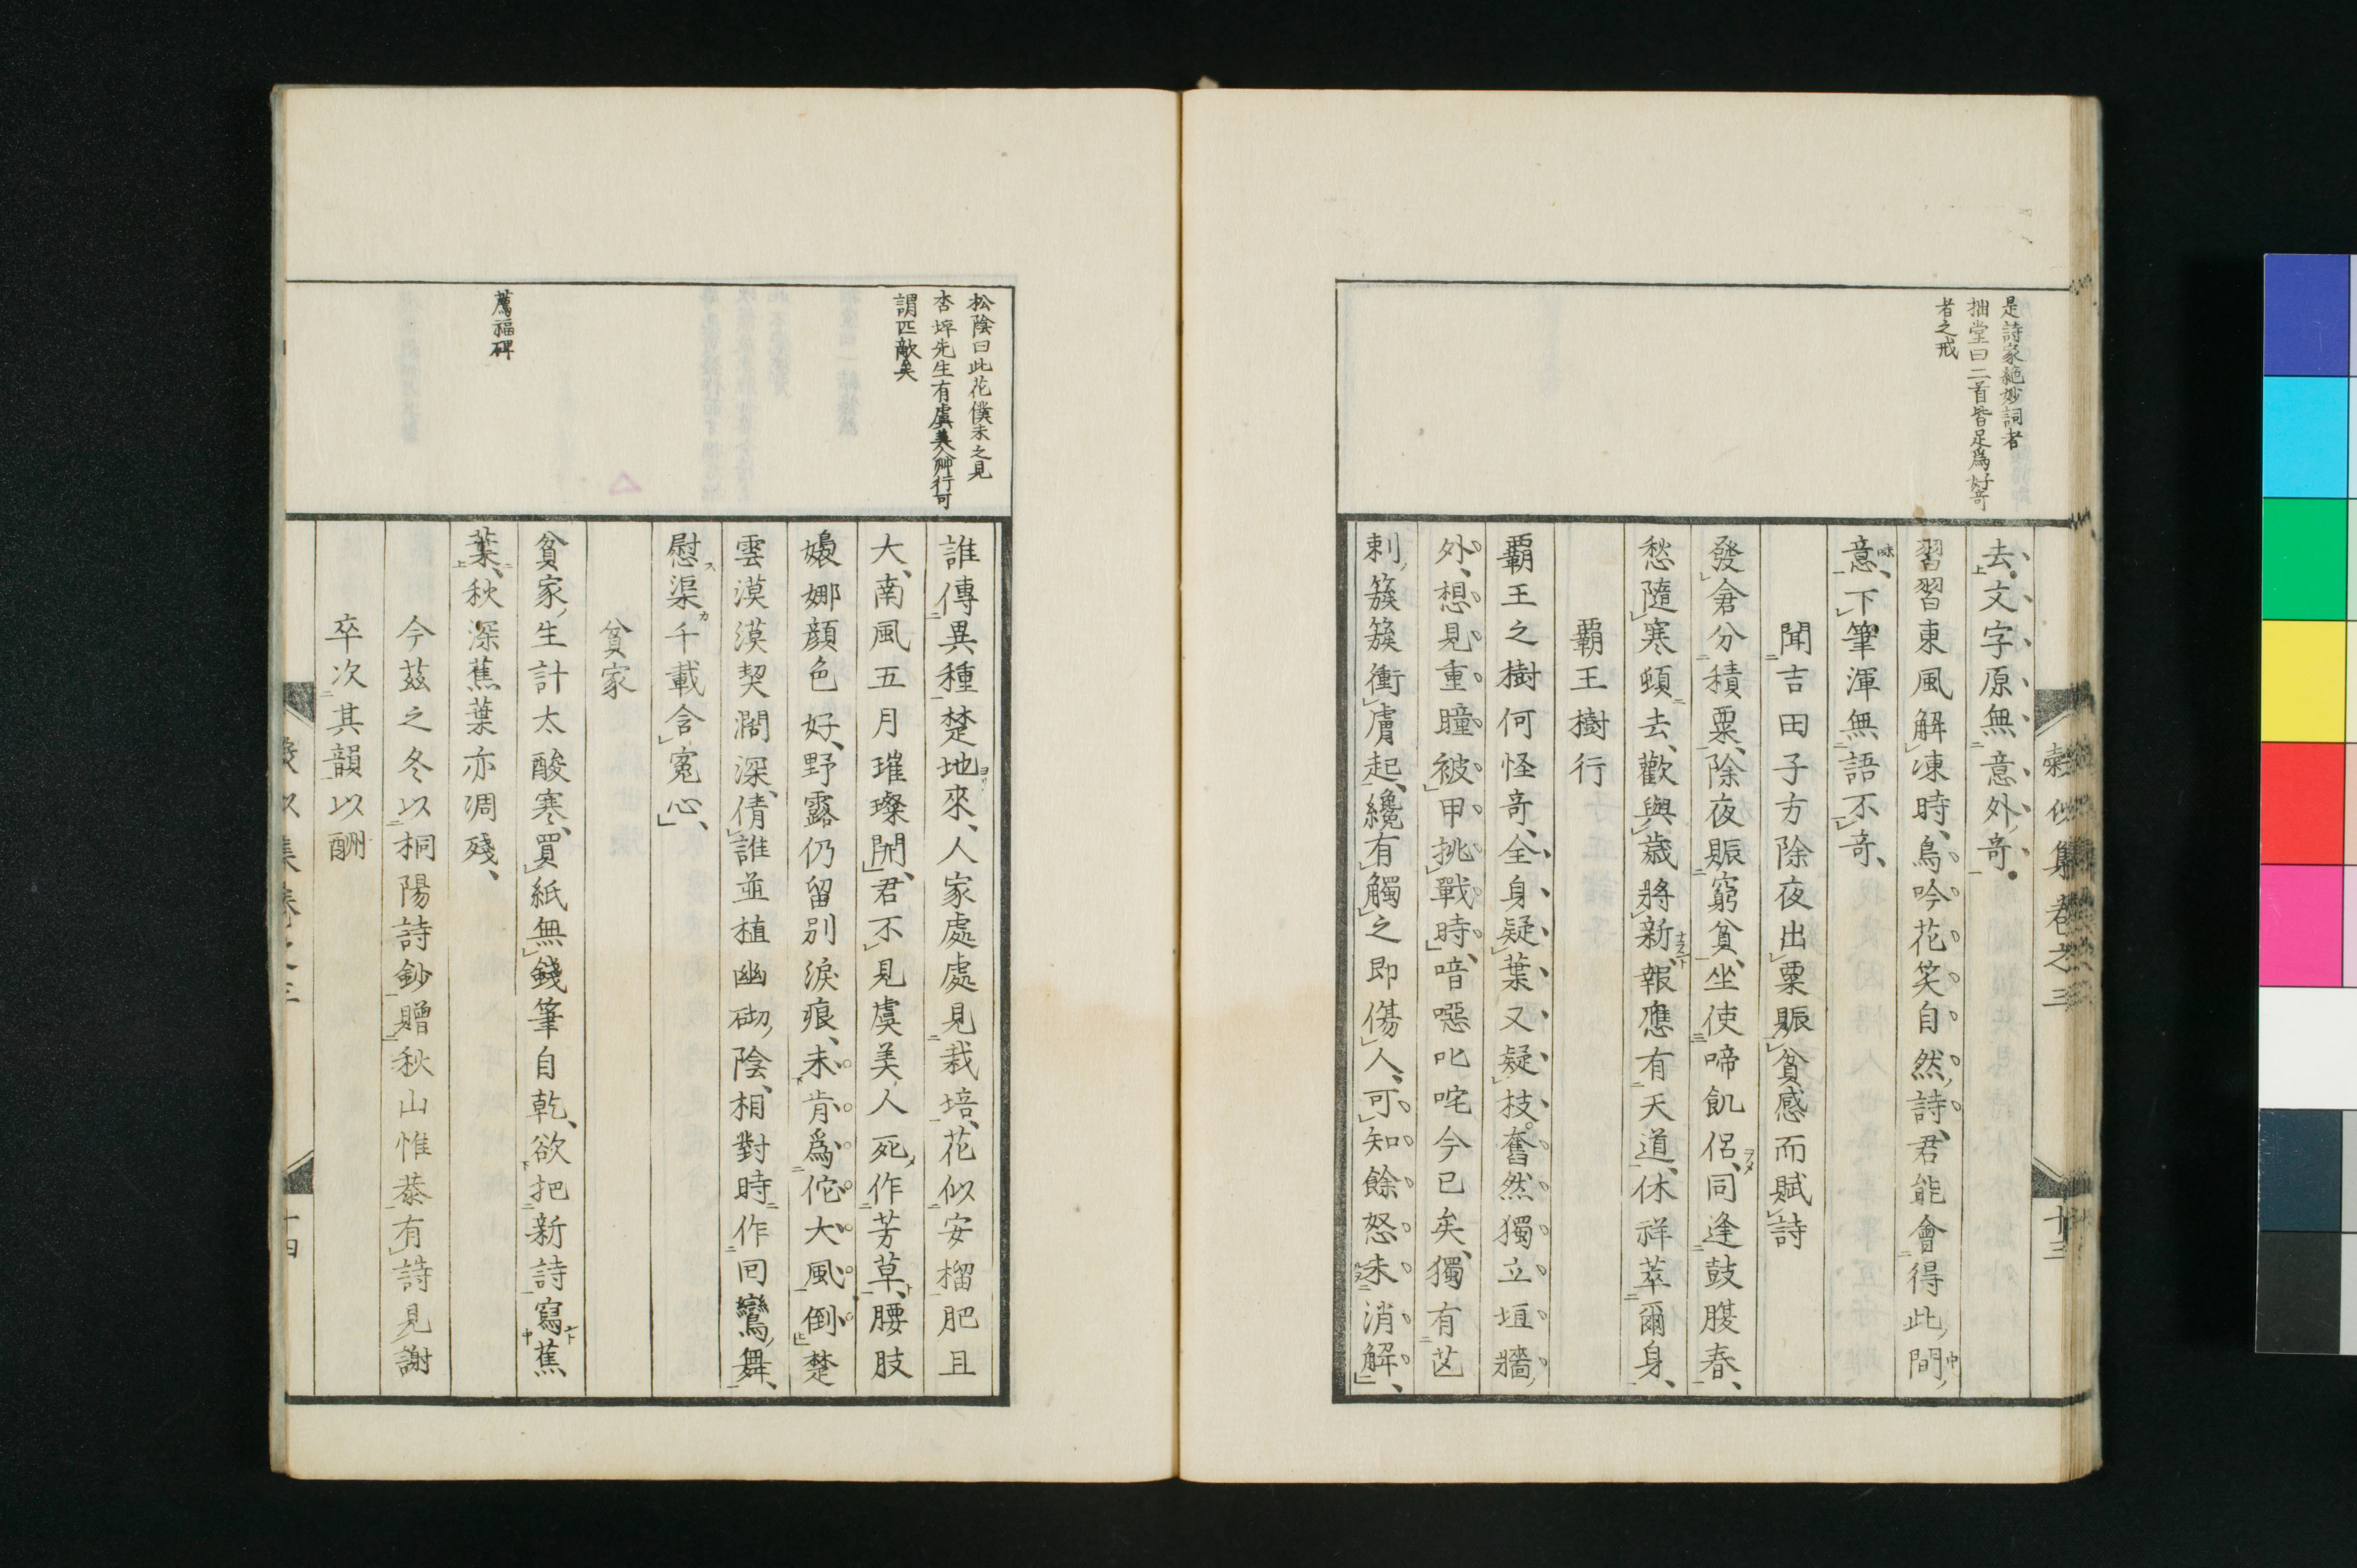 是詩家絶妙詞者
抽堂曰二首皆足爲好竒
者之戒
去文字原無意外竒
習習東風解凍時鳥吟花笑自然詩君能會得此間
意下筆渾無語不竒
聞吉田子方除夜出粟賑貧感而賦詩
發倉分積粟除夜賑窮貧坐使啼飢侶同逢鼓腹春
愁隨寒頓去歡與歳將新報應有天道休祥萃爾身
覇王樹行
覇王之樹何怪竒全身疑葉又疑枝奮然獨立垣牆
外想見重瞳被甲挑戰時喑噁叱咤今已矣獨有芒
刺簇簇衝膚起纔有觸之即傷人可知餘怒未消解
集卷之三
十三
松陰曰此花僕未之見
杏坪先生有虞美人艸行可
謂匹敵矣
薦福碑
誰傳異種楚地來人家處處見栽培花似安榴肥且
大南風五月璀璨開君不見虞美人死作芳草腰肢
嬝娜顔色好野露仍留別淚痕未肯爲佗大風倒楚
雲漠漠契濶深倩誰並植幽砌陰相對時作回鸞舞
慰渠千載含寃心
貧家
貧家生計太酸寒買紙無錢筆自乾欲把新詩寫蕉
葉秋深蕉葉亦凋殘
今茲之冬以桐陽詩鈔贈秋山惟恭有詩見謝
卒次其韻以酬
十四